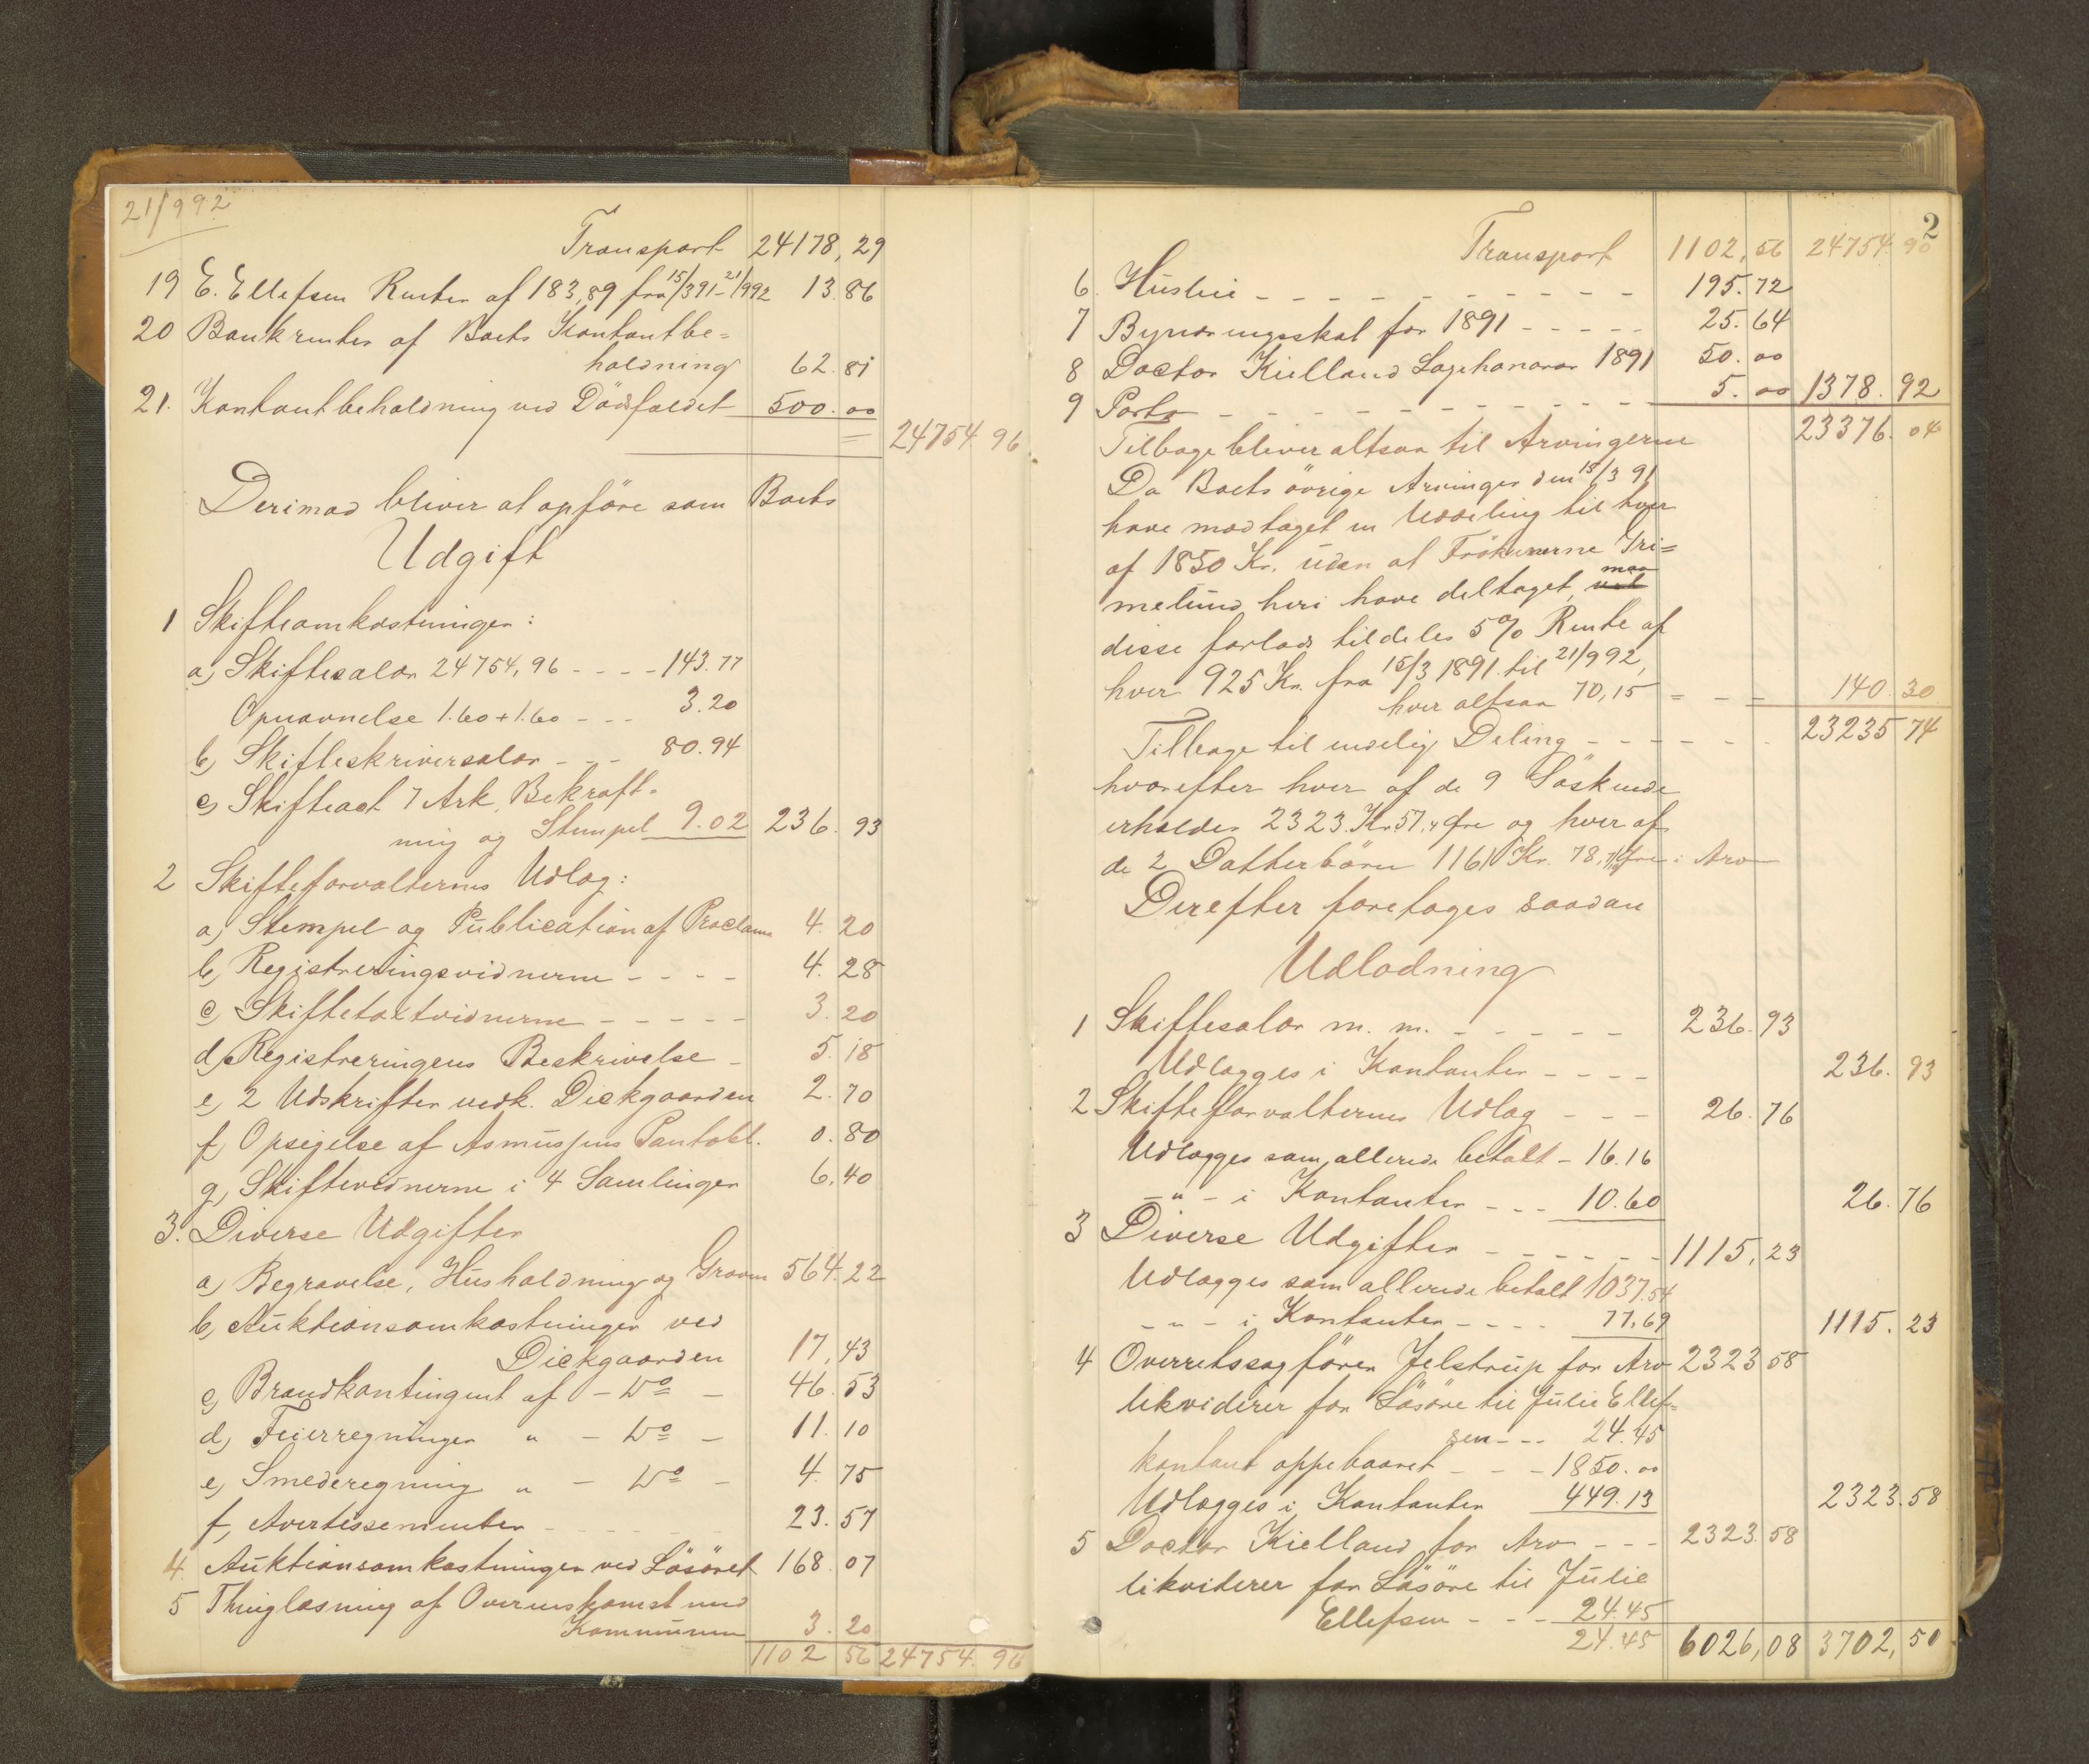 21/992
Transport 24178,29
19 E. Ellefsen Renter af 183,89 fra 15/391-21/992 13.86
20 Bankrenter af Boets Kontantbe=
holdning 62.81
21. Kontantbeholdning ved Dödsfaldet 500.00
= 24754.96
Derimod bliver at opföre som Boets
Udgift
1 Skifteomkostninger:
a) Skiftesalær 24754,96 - - - - 143.77
Opnævnelse 1.60+1.60 - - - 3.20
b) Skifteskriversalær - - - 80.94
c) Skifteact 7 Ark, Bekræft=
ning og Stempel 9.02 236.93
2 Skifteforvalterens Udlæg:
a) Stempel og Publication af Proclama 4.20
b) Registreringsvidnerne - - - - 4.28
c) Skiftetaxtvidnerne - - - - - 3.20
d) Registreringens Beskrivelse - 5.18
e) 2 Udskrifter vedk. Dickgaarden 2.70
f) Opsigelse af Asmussens Pantobl. 0.80
g) Skiftevidnerne i 4 Samlinger 6.40
3. Diverse Udgifter
a) Begravelse, Husholdning og Graven 564.22
b) Auktionsomkostninger ved
Dickgaarden 17,43
c) Brandkontingent af - Do - 46.53
d) Feierregninger " - Do - 11.10
e) Smederegning " - Do - 4.75
f) Avertissementer - - - - - - 23.57
4. Auktionsomkostninger ved Lösöret 168.07
5 Thinglæsning af Overenskomst med
Kommunen 3.20
1102 56 24754.96
2
Transport 1102,56 24754.96
6. Husleie - - - - - - - - - - 195.72
7 Bynæringsskat for 1891 - - - - - 25.64
8 Doctor Kielland Lægehonorar 1891 50.00
9 Porto - - - - - - - - - - - 5.00 1378.92
Tilbage bliver altsaa til Arvingerne 23376.04
Da Boets övrige Arvinger den 15/3 91
have modtaget en Uddeling til hver
af 1850 Kr. uden at Frökenerne Gri=
melund heri have deltaget, maa
disse forlods tildeles 5% Rente af
hver 925 Kr. fra 15/3 1891 til 21/992,
hver altsaa 70,15 - - - 140.30
Tilbage til endelig Deling - - - - - - 23235 74
hvorefter hver af de 9 Söskende
erholder 2323. Kr. 57,4 Öre og hver af
de 2 Datterbörn 1161 Kr. 78,7 Öre i Arv
Derefter foretages saadan
Udlodning
1 Skiftesalær m. m. - - - - - 236.93
Udlægges i Kontanter - - - - 236.93
2 Skifteforvalterens Udlæg - - - 26.76
Udlægges som allerede betalt - 16.16
- " - i Kontanter - - - 10.60 26.76
3 Diverse Udgifter - - - - - - 1115,23
Udlægges som allerede betalt 1037.54
- " - i Kontanter - - - - 77.69 1115.23
4 Overretssagförer Jelstrup for Arv 2323 58
likviderer for Lösöre til Julie Ellef=
sen - - - 24.45
kontant oppebaaret - - - 1850.00
Udlægges i Kontanter 449.13 2323.58
5 Doctor Kielland for Arv - - - 2323.58
likviderer for Lösöre til Julie
Ellefsen - - - 24.45
24.45 6026,08 3702,50